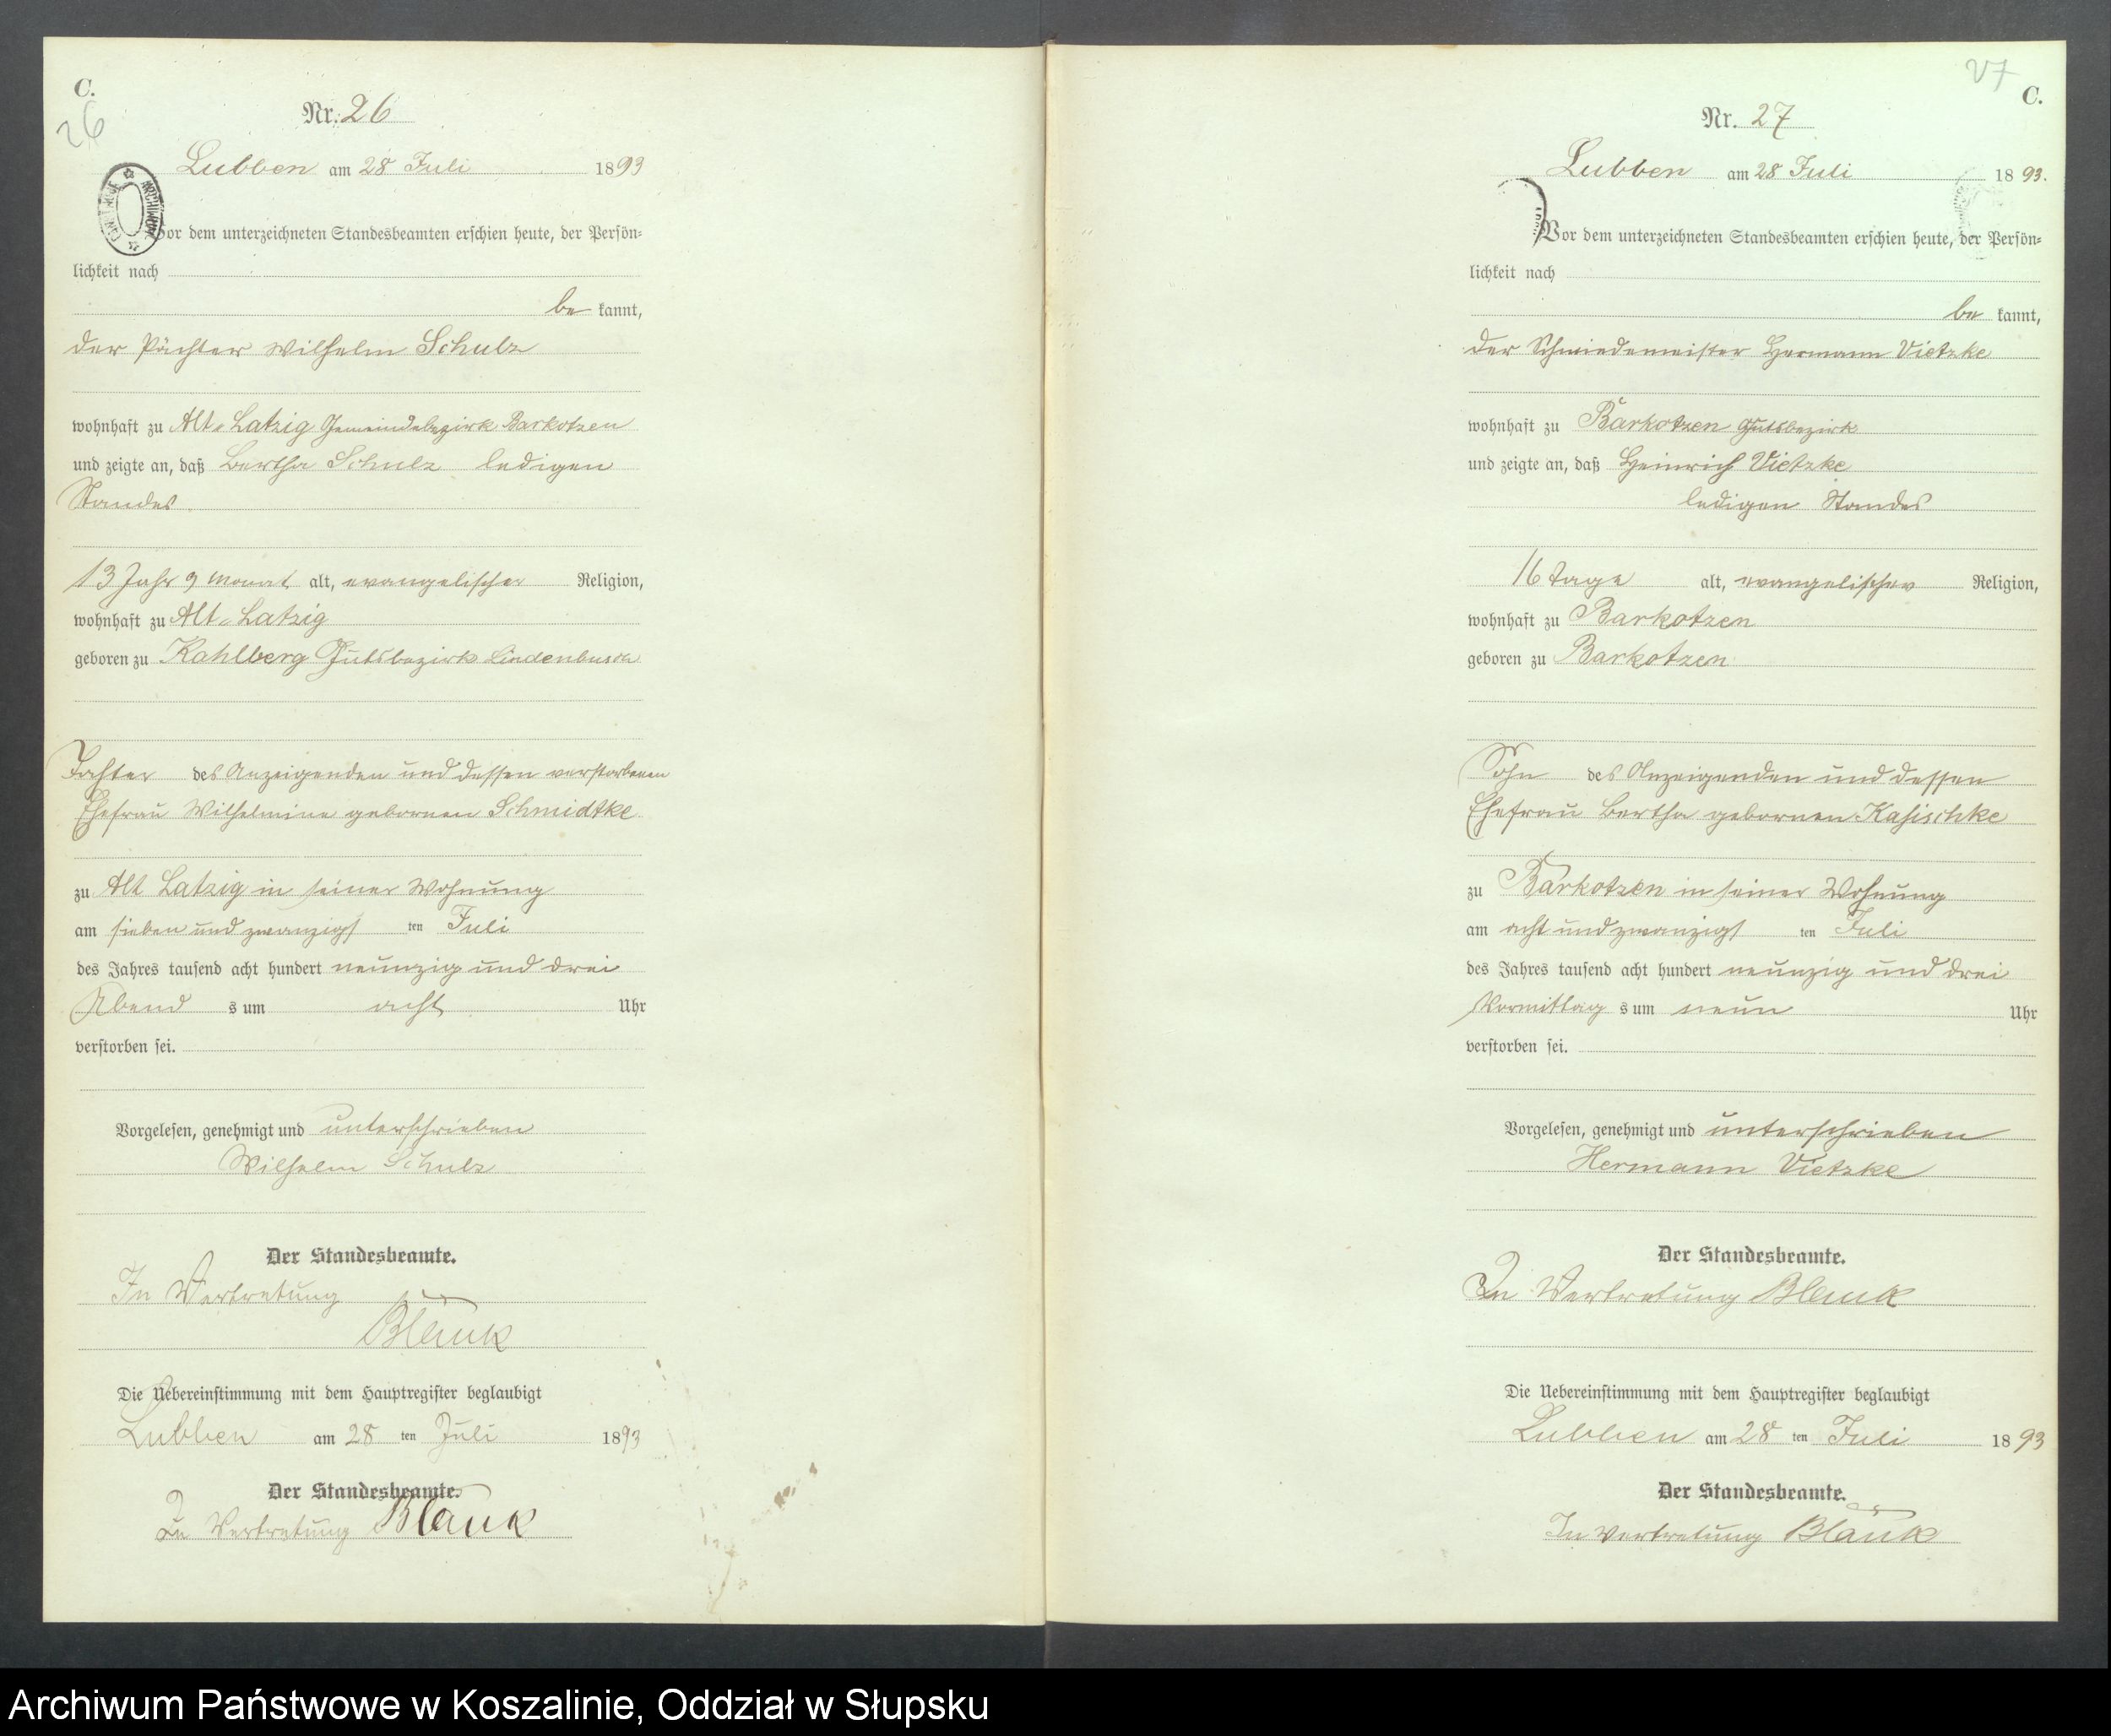 C.
26
Nr. 26
Lubben am 28 Juli 1893
Vor dem unterzeichneten Standesbeamten erschien heute, der Persön-
lichkeit nach
be kannt,
der Pächter Wilhelm Schulz
wohnhaft zu Alt-Latzig Gemeindebezirk Barkotzen
und zeigte an, daß Bertha Schulz ledigen
Standes
13 Jahr 9 Monat alt, evangelischer Religion,
wohnhaft zu Alt-Latzig
geboren zu Kahlberg Gutsbezirk Lindenbusch
Tochter des Anzeigenden und dessen verstorbenen
Ehefrau Wilhelmine gebornen Schmidtke
zu Alt Latzig in seiner Wohnung
am sieben und zwanzigs ten Juli
des Jahres tausend acht hundert neunzig und drei
Abend s um acht Uhr
verstorben sei.
Vorgelesen, genehmigt und unterschrieben
Wilhelm Schulz
Der Standesbeamte.
In Vertretung
Blauk
Die Uebereinstimmung mit dem Hauptregister beglaubigt
Lubben am 28 ten Juli 1893
Der Standesbeamte.
In Vertretung Blauk
27
C.
Nr. 27
Lubben am 28 Juli 1893.
Vor dem unterzeichneten Standesbeamten erschien heute, der Persön-
lichkeit nach
be kannt,
der Schmiedemeister Hermann Vietzke
wohnhaft zu Barkotzen Gutsbezirk
und zeigte an, daß Heinrich Vietzke
ledigen Standes
16 Tage alt, evangelischer Religion,
wohnhaft zu Barkotzen
geboren zu Barkotzen
Sohn des Anzeigenden und dessen
Ehefrau Bertha gebornen Kasischke
zu Barkotzen in seiner Wohnung
am acht und zwanzigs ten Juli
des Jahres tausend acht hundert neunzig und drei
Vormittag s um neun Uhr
verstorben sei.
Vorgelesen, genehmigt und unterschrieben
Hermann Vietzke
Der Standesbeamte.
In Vertretung Blauk
Die Uebereinstimmung mit dem Hauptregister beglaubigt
Lubben am 28 ten Juli 1893
Der Standesbeamte.
In Vertretung Blauk
Archiwum Państwowe w Koszalinie, Oddział w Słupsku